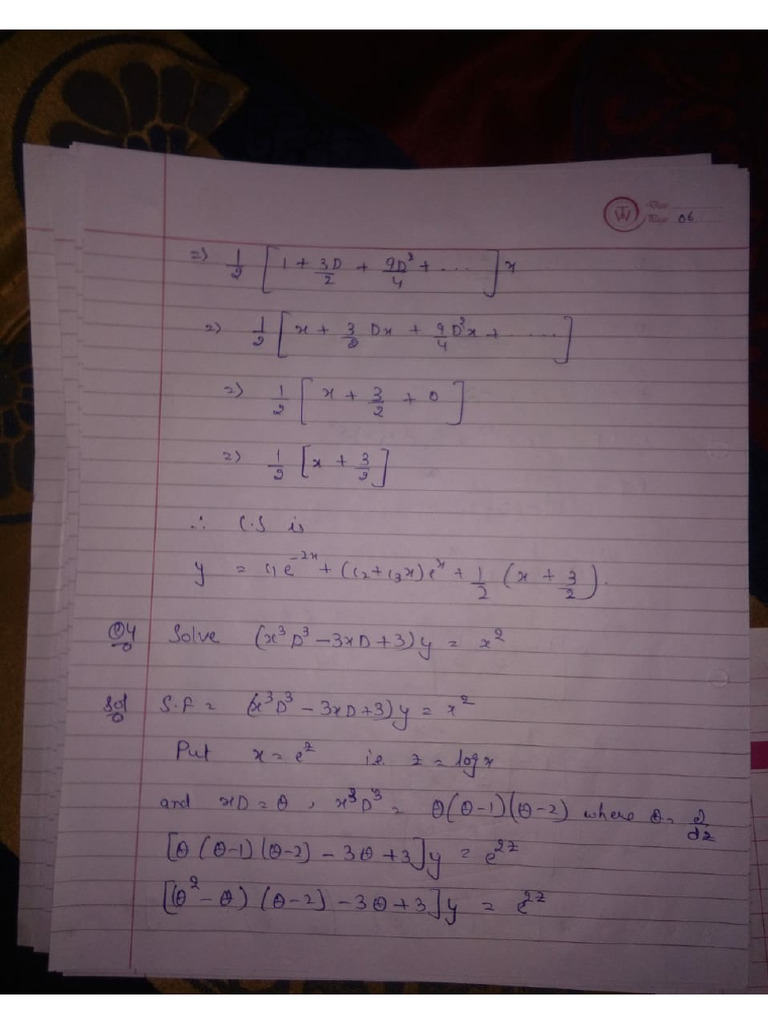 Page 06
=) 1/2 [ 1 + 3D/2 + 9D²/4 + .... ] x
=) 1/2 [ x + 3/2 Dx + 9/4 D²x + ...... ]
=) 1/2 [ x + 3/2 + 0 ]
=) 1/2 [ x + 3/2 ]
∴ C.S is
y = c₁e^-2x + (c₂+c₃x)e^x + 1/2 (x + 3/2).
Q4 Solve (x³D³ - 3xD + 3)y = x²
Sol S.F = (x³D³ - 3xD + 3)y = x²
Put x = e^z i.e. z = log x
and xD = θ, x³D³ = θ(θ-1)(θ-2) where θ = d/dz
[θ(θ-1)(θ-2) - 3θ + 3]y = e^2z
[(θ² - θ)(θ-2) - 3θ + 3]y = e^2z